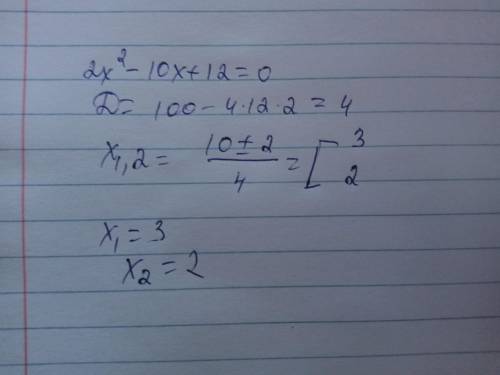 2x² - 10x + 12 = 0
D = 100 - 4·12·2 = 4
x₁,₂ = (10 ± 2)/4 = [ 3 2
x₁ = 3
x₂ = 2